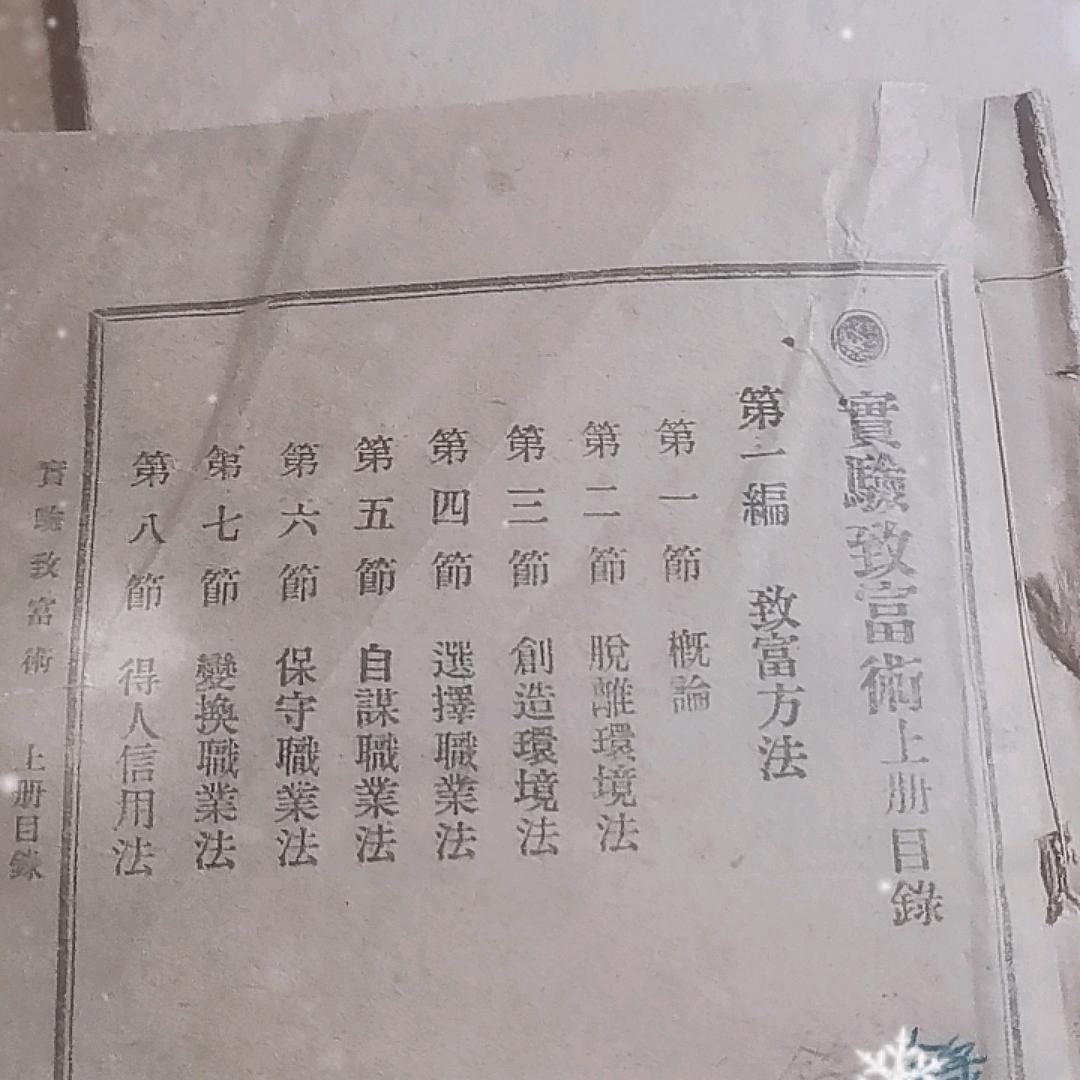 實驗致富術上册目錄
第一編 致富方法
第一節 概論
第二節 脫離環境法
第三節 創造環境法
第四節 選擇職業法
第五節 自謀職業法
第六節 保守職業法
第七節 變換職業法
第八節 得人信用法
實驗致富術 上册目錄